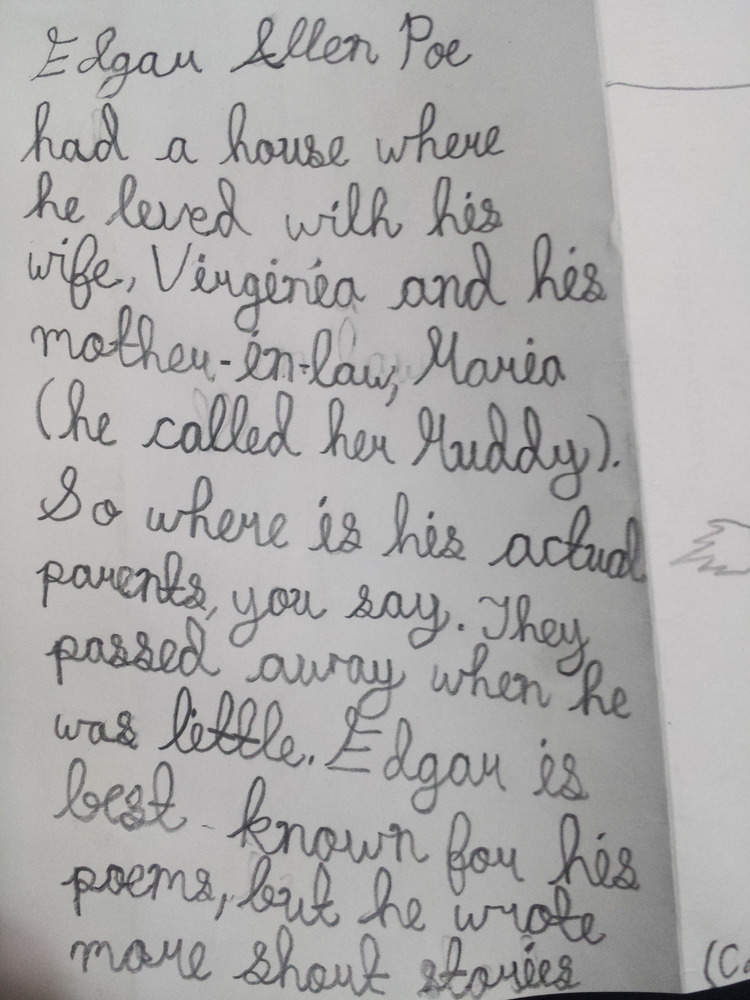 Edgar Allen Poe
had a house where
he lived with his
wife, Virginia and his
mother-in-law, Maria
(he called her Muddy).
So where is his actual
parents, you say. They
passed away when he
was little. Edgar is
best-known for his
poems, but he wrote
more short stories
(Ca